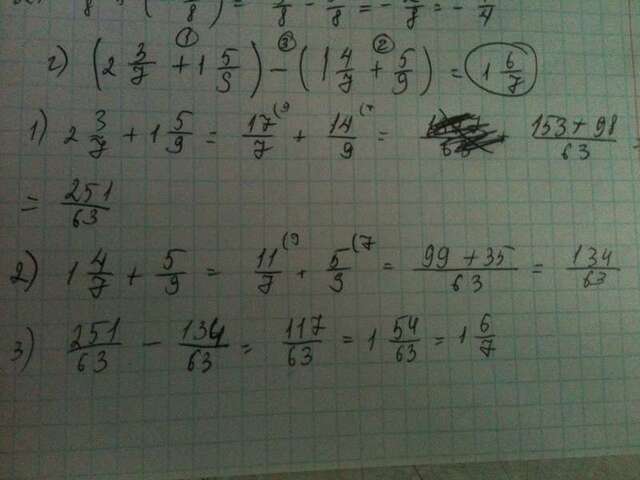 8 = 8 - 8 = - 8 = - 4
г) (2 3/7 + 1 5/9) - (1 4/7 + 5/9) = 1 6/7
① ③ ②
1) 2 3/7 + 1 5/9 = 17/7 (9 + 14/9 (7 = 153 + 98/63 =
= 251/63
2) 1 4/7 + 5/9 = 11/7 (9 + 5/9 (7 = 99 + 35/63 = 134/63
3) 251/63 - 134/63 = 117/63 = 1 54/63 = 1 6/7